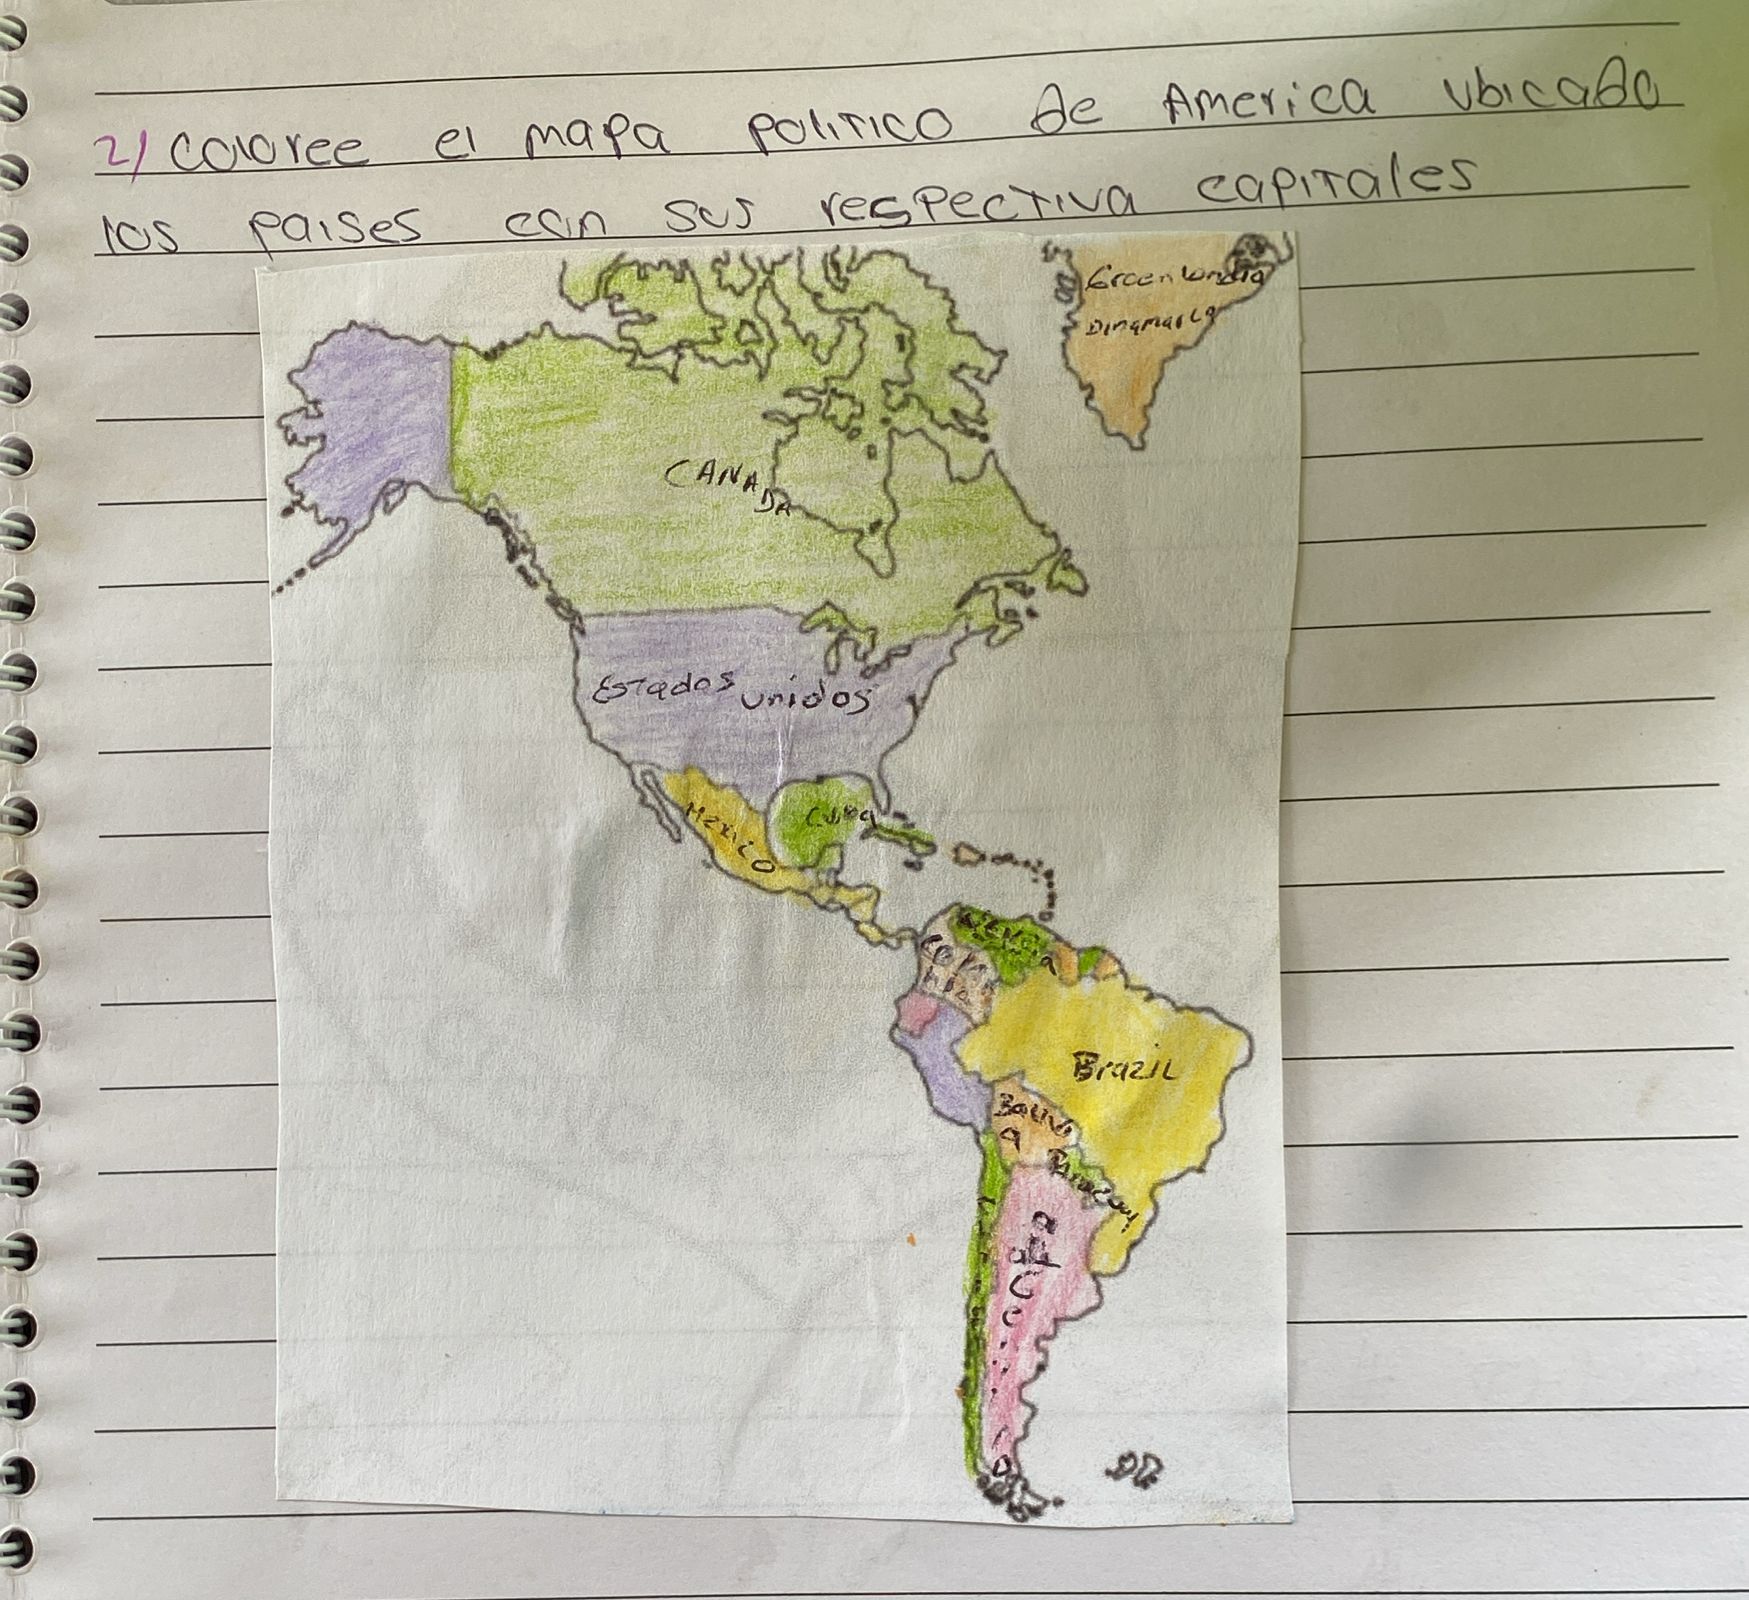 2) Coloree el mapa politico de America ubicado
los paises con sus respectiva capitales
Groenlandia
Dinamarca
CANADA
Estados unidos
Mexico
Cuba
Brazil
Bolivia